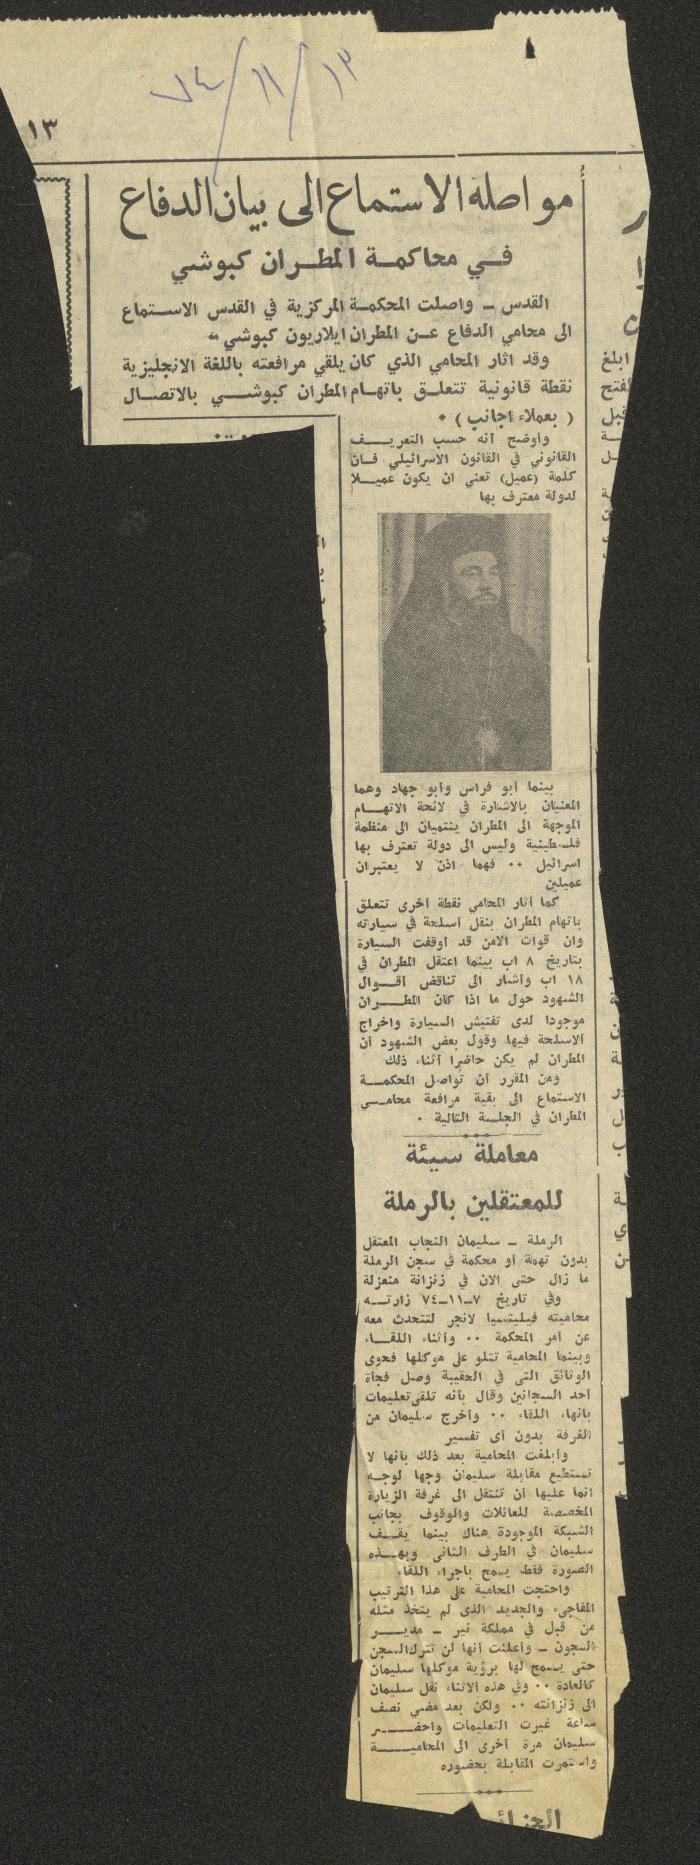 ٧٤/١١/١٣
١٣
مواصلة الاستماع الى بيان الدفاع
في محاكمة المطران كبوشي
القدس ـ واصلت المحكمة المركزية في القدس الاستماع
الى محامي الدفاع عن المطران ايلاريون كبوشي ٠
وقد اثار المحامي الذي كان يلقي مرافعته باللغة الانجليزية
نقطة قانونية تتعلق باتهام المطران كبوشي بالاتصال
( بعملاء اجانب ) ٠
واوضح انه حسب التعريف
القانوني في القانون الاسرائيلي فان
كلمة (عميل) تعني ان يكون عميلا
لدولة معترف بها
بينما ابو فراس وابو جهاد وهما
المعنيان بالاشارة في لائحة الاتهام
الموجهة الى المطران ينتميان الى منظمة
فلسطينية وليس الى دولة تعترف بها
اسرائيل ٠٠ فهما اذن لا يعتبران
عميلين
كما اثار المحامي نقطة اخرى تتعلق
باتهام المطران بنقل اسلحة في سيارته
وان قوات الامن قد اوقفت السيارة
بتاريخ ٨ اب بينما اعتقل المطران في
١٨ اب واشار الى تناقض اقوال
الشهود حول ما اذا كان المطران
موجودا لدى تفتيش السيارة واخراج
الاسلحة فيها وقول بعض الشهود ان
المطران لم يكن حاضرا اثناء ذلك
ومن المقرر ان تواصل المحكمة
الاستماع الى بقية مرافعة محامي
المطران في الجلسة التالية ٠
معاملة سيئة
للمعتقلين بالرملة
الرملة ـ سليمان النجاب المعتقل
بدون تهمة او محكمة في سجن الرملة
ما زال حتى الان في زنزانة منعزلة
وفي تاريخ ٧ـ١١ـ٧٤ زارته
محاميته فيليتسيا لانجر لتتحدث معه
عن امر المحكمة ٠٠ واثناء اللقاء
وبينما المحامية تتلو على موكلها فحوى
الوثائق التى في الحقيبة وصل فجأة
احد السجانين وقال بأنه تلقى تعليمات
بانهاء اللقاء ٠٠ واخرج سليمان من
الغرفة بدون اى تفسير
وابلغت المحامية بعد ذلك بأنها لا
تستطيع مقابلة سليمان وجها لوجه
انما عليها ان تنتقل الى غرفة الزيارة
المخصصة للعائلات والوقوف بجانب
الشبكة الموجودة هناك بينما يقف
سليمان في الطرف الثانى وبهذه
الصورة فقط يسمح باجراء اللقاء
واحتجت المحامية على هذا الترتيب
المفاجىء والجديد الذى لم يتخذ مثله
من قبل في مملكة نير ـ مدير
السجون ـ واعلنت انها لن تترك السجن
حتى يسمح لها برؤية موكلها سليمان
كالعادة ٠٠ وفي هذه الاثناء نقل سليمان
الى زنزانته ٠٠ ولكن بعد مضي نصف
ساعة غيرت التعليمات واحضر
سليمان مرة اخرى الى المحامية
واستمرت المقابلة بحضوره
ابلغ